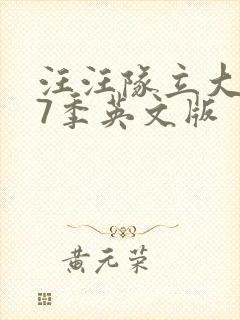 汪汪队立大
7季英文版
黄元荣